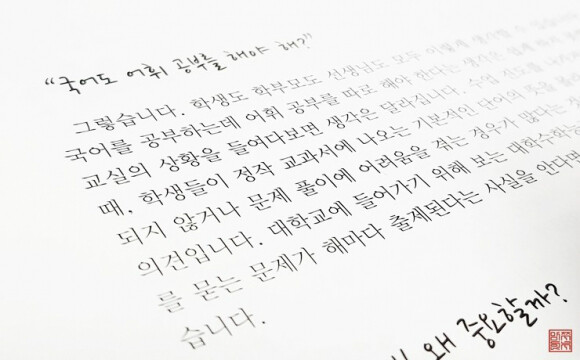 “국어도 어휘 공부를 해야 해?”
그렇습니다. 학생도 학부모도 선생님도 모두 이렇게 생각할 수
국어를 공부하는데 어휘 공부를 따로 해야 한다는 생각은 쉽게 하지
교실의 상황을 들여다보면 생각은 달라집니다. 수업 진도를
때, 학생들이 정작 교과서에 나오는 기본적인 단어의 뜻을 몰라
되지 않거나 문제 풀이에 어려움을 겪는 경우가 많다는
의견입니다. 대학교에 들어가기 위해 보는 대학수학능
를 묻는 문제가 해마다 출제된다는 사실을 안다면
습니다.
왜 중요할까?